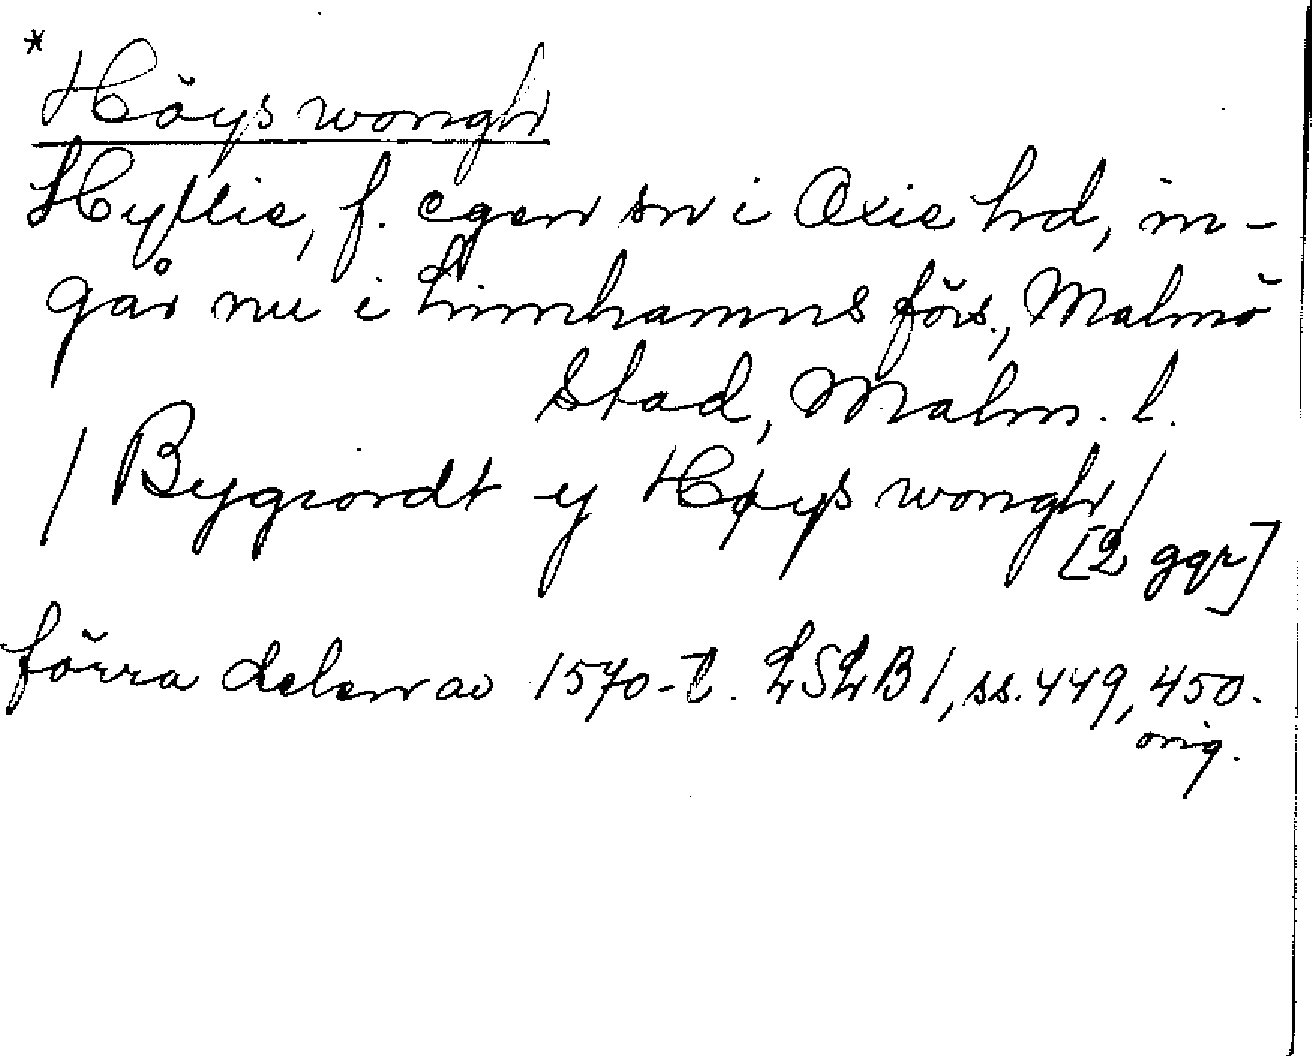 *
Höys wongh
Hyllie, f. egen sn i Oxie hd, in-
går nu i Limhamns förs., Malmö
stad, Malm. l.
/ Bygiordt y Høys wongh /
[2 ggr]
förra delen av 1570-t. LSLB 1, ss. 449, 450.
orig.